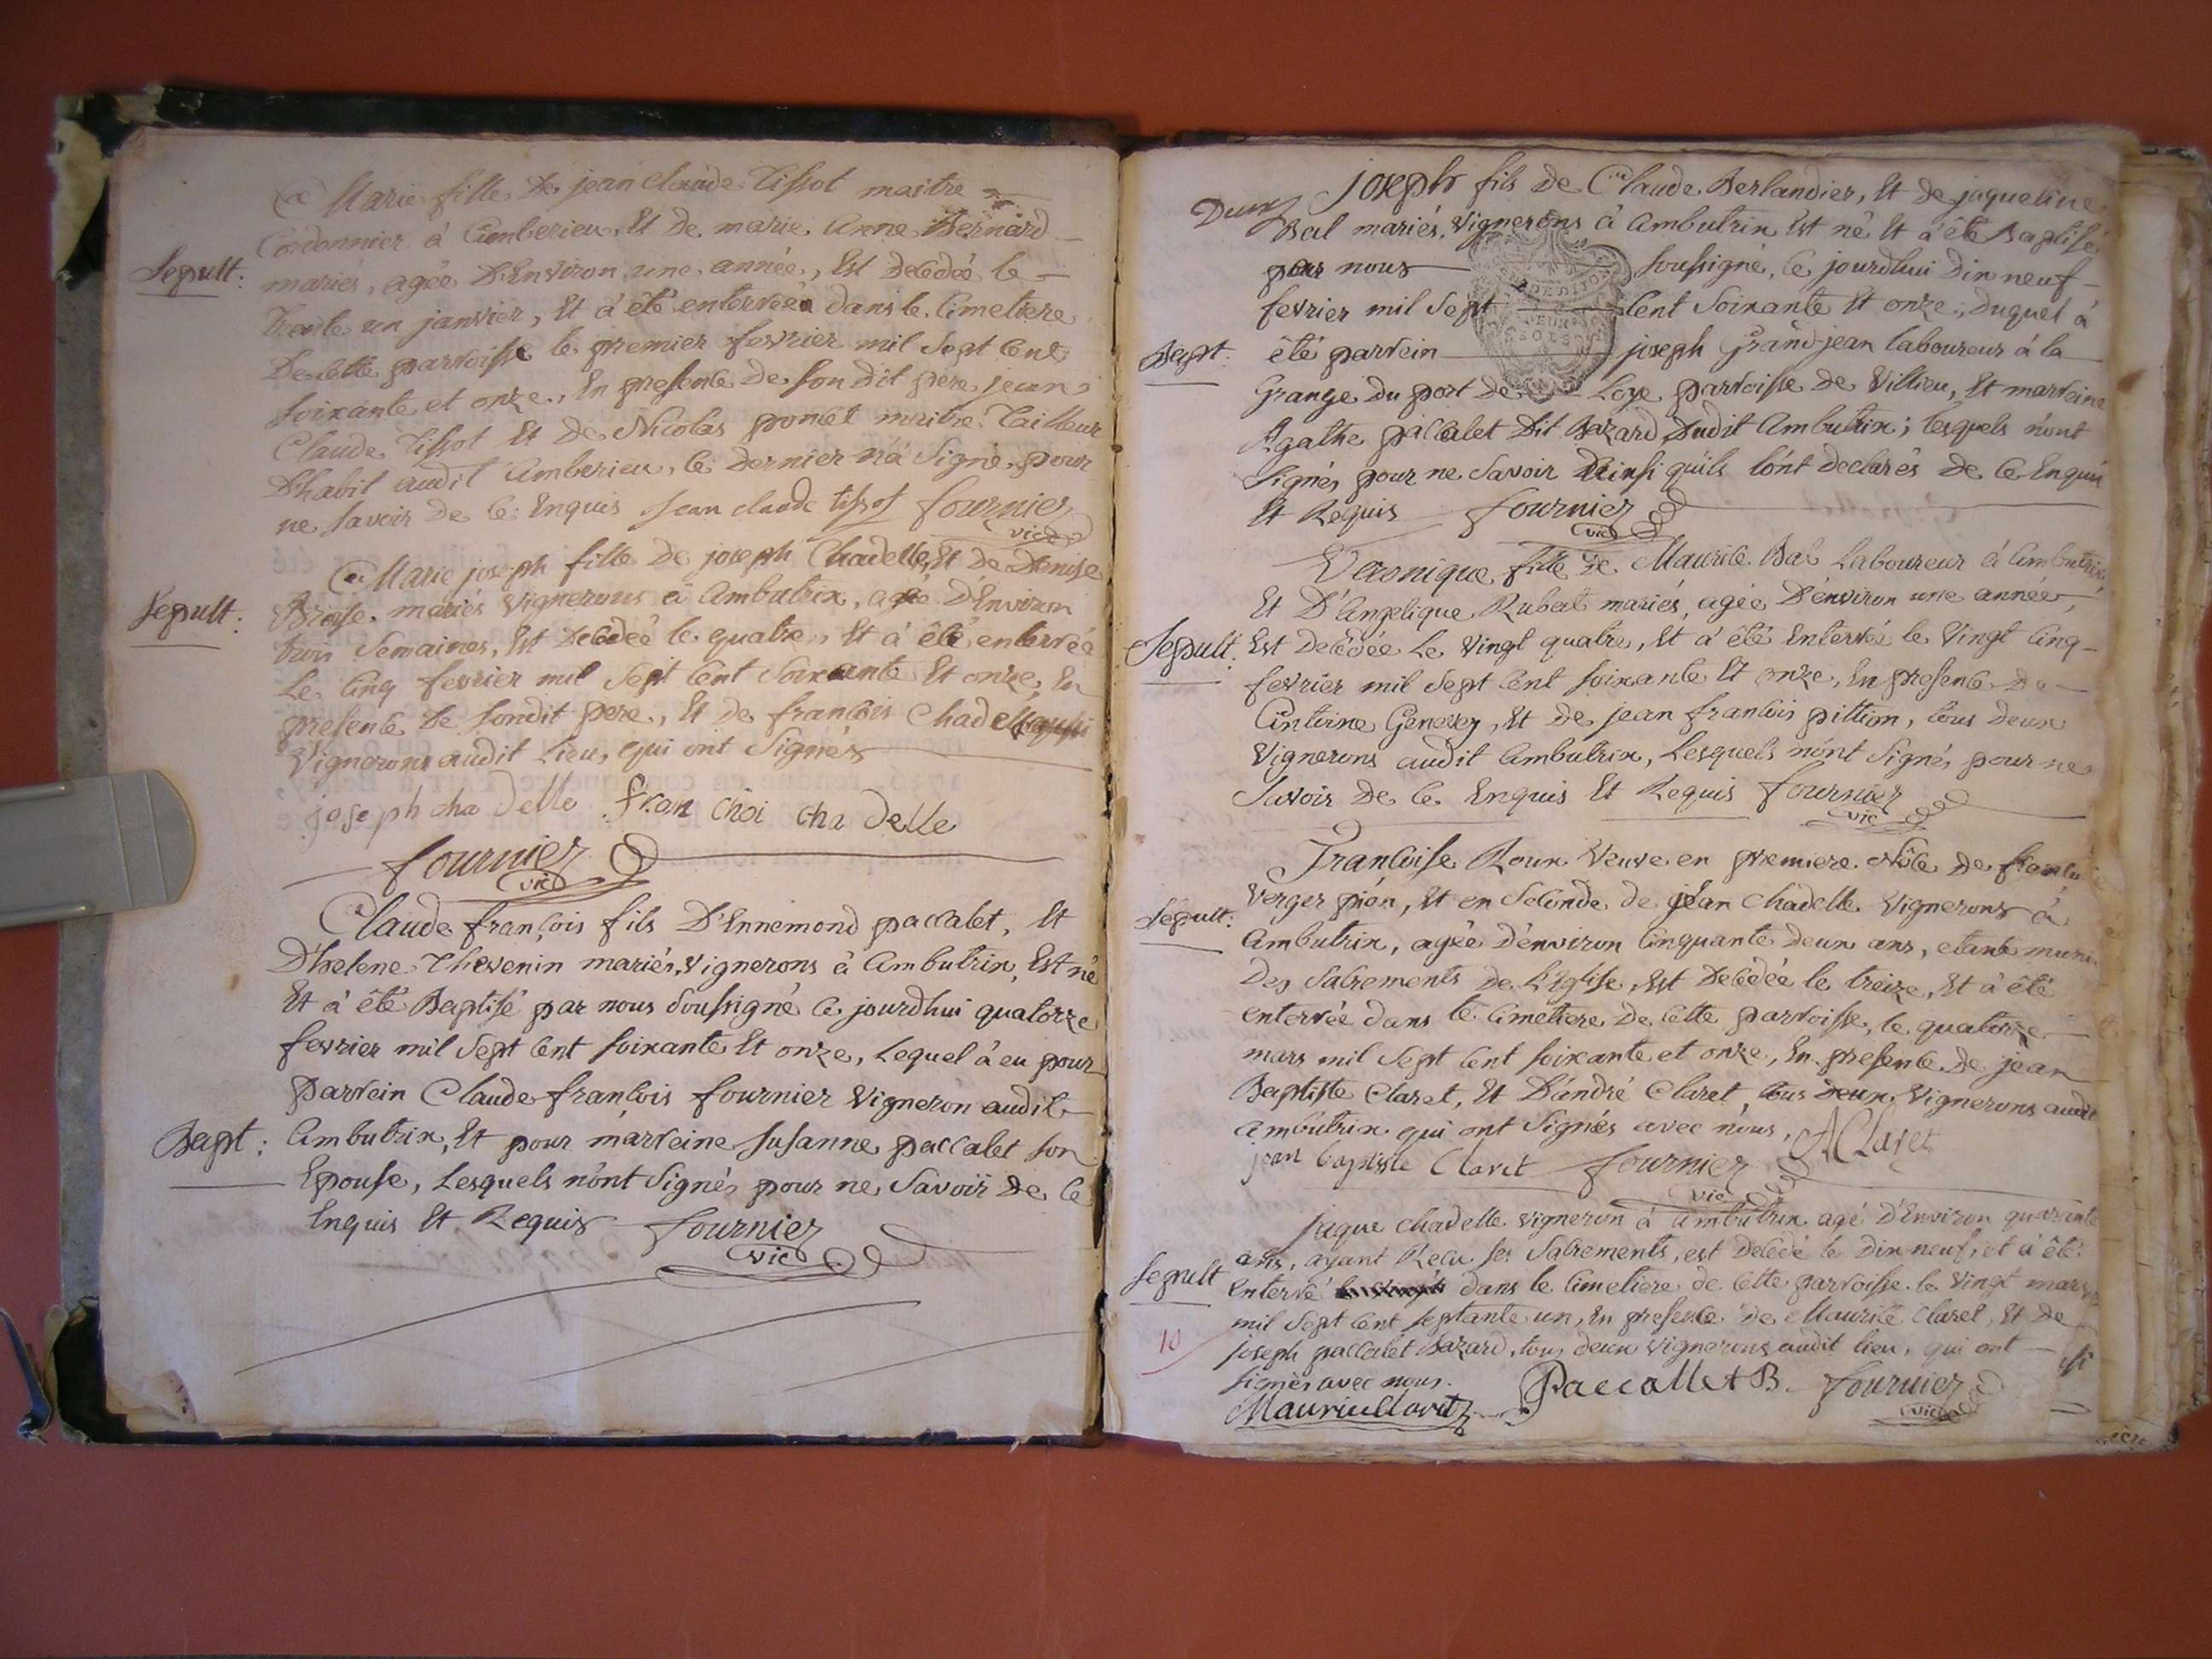 Marie fille de jean claude Tissot maitre
Cordonnier à Amberieu, Et de marie Anne Bernard
Sepult:
mariés, agée D'Environ une année, Est decedée le
Trente un janvier, Et à été enterrée dans le Cimetiere
De cette parroisse le premier fevrier mil Sept Cent
soixante et onze, En presence de son dit pere jean
Claude Tissot Et de Nicolas poncet maitre Tailleur
D'habit audit Amberieu, le dernier n'a Signé pour
ne savoir de ce Enquis Jean claude tissot fournier
vic
Marie joseph fille de joseph Chadelle, Et de Denise
Brosse mariés vignerons à Ambutrix, agée D'Environ
Sepult:
trois Semaines, Est Decedeé le quatre, Et à été enterreé
Le Cinq fevrier mil Sept Cent Soixante Et onze, En
presence de sondit pere, Et de francois Chadelle aussi
Vignerons audit Lieu, qui ont Signés
joseph cha delle fran choi cha delle
fournier
vic
Claude françois fils D'Ennemond paccalet, Et
D'helene Thevenin mariés, Vignerons à Ambutrix, Est né
Et à été Baptisé par nous soussigné ce jourdhui quatorze
fevrier mil Sept Cent soixante Et onze, Lequel à eu pour
parrein Claude françois fournier Vigneron audit
Bapt:
Ambutrix, Et pour marreine susanne paccalet son
Epouse, Lesquels n'ont Signés pour ne Savoir de ce
Enquis Et Requis fournier
vic
Deux
joseph fils de Claude Berlandier, Et de jaqueline
Bal mariés, Vignerons à Ambutrix Est né Et à été Baptisé
par nous soussigné, ce jourdhui Dix neuf
fevrier mil Sept Cent Soixante Et onze, Duquel à
Bapt:
été parrein joseph Grand jean laboureur à la
Grange Du port de Loye parroisse de Villieu, Et marreine
Agathe paccalet Dit Bazard Dudit Ambutrix; lesquels n'ont
Signés pour ne Savoir Ainsi qu'ils l'ont declarés de ce Enquis
Et Requis fournier
vic
Veronique fille de Maurice Bal Laboureur à Ambutrix
Et D'Angelique Rubat mariés, agée D'environ une année,
Sepult:
Est decedée Le Vingt quatre, Et à été Enterrée le Vingt Cinq
fevrier mil Sept Cent soixante Et onze, En presence de
Antoine Genevey, Et de jean francois pittion, tous deux
Vignerons audit Ambutrix, Lesquels n'ont Signés pour ne
Savoir De Ce Enquis Et Requis fournier
vic
Francoise Roux Veuve en premiere Nôce de
Verger pión, Et en Seconde de jean chadelle Vignerons à
Sepult:
Ambutrix, agée D'environ Cinquante deux ans, etant
Des Sacrements de L'Eglise, Est Decedée le treize, Et à été
enterrée dans le Cimetiere De Cette parroisse, le quatorze
mars mil Sept Cent soixante et onze, En presence de jean
Baptiste Claret, Et D'andré Claret, tous deux Vignerons audit
Ambutrix qui ont Signés avec nous, A Claret
jean baptiste Claret fournier
vic
jaque chadelle vigneron à Ambutrix agé D'Environ quarante
ans, ayant Recu ses Sacrements, est decedé le Dix neuf, et à été
Sepult
Enterré dans le Cimetiere de Cette parroisse le Vingt mars
mil Sept Cent septante un, En presence de Maurice Claret, Et de
10
joseph paccalet Bazard, tous deux Vignerons audit lieu, qui ont
signés avec nous.
Paccallet B. fournier
vic